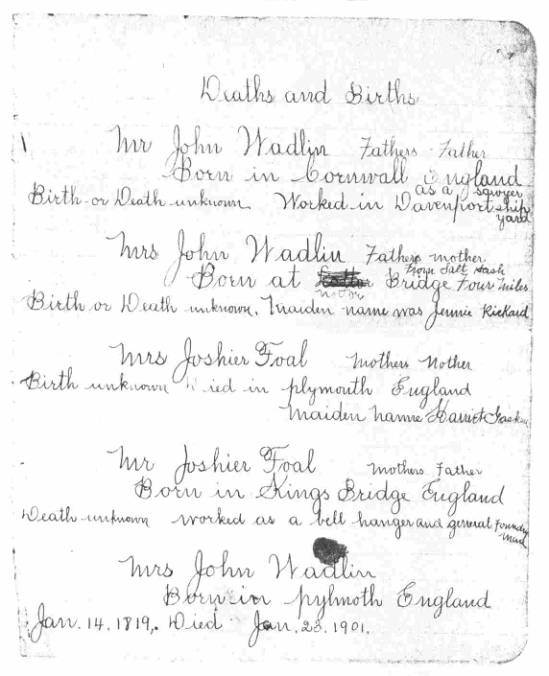 Deaths and Births
Mr John Wadlin Fathers Father
Born in Cornwall England
as a sawyer
Birth or Death unknown Worked in Davenport ship
yard
Mrs John Wadlin Fathers mother
from Salt ash
Born at Bridge Four miles
Birth or Death unknown. maiden name was Jennie Rickard
Mrs Joshier Foal Mothers Mother
Birth unknown Died in plymouth England
maiden name Harriet
Mr Joshier Foal Mothers Father
Born in Kings Bridge England
Death unknown worked as a bell hanger and general foundry
man
Mrs John Wadlin
Born in pylmoth England
Jan. 14. 1819,. Died Jan. 23. 1901.